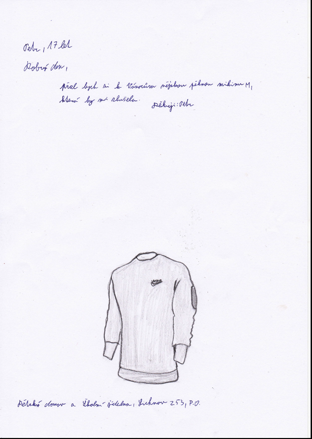 Petr, 17 let
Dobrý den,
přál bych si k Vánocům nějakou pěknou mikinu M,
která by mi slušela.
Děkuji. Petr
Dětský domov a Školní jídelna, 253, P.O.